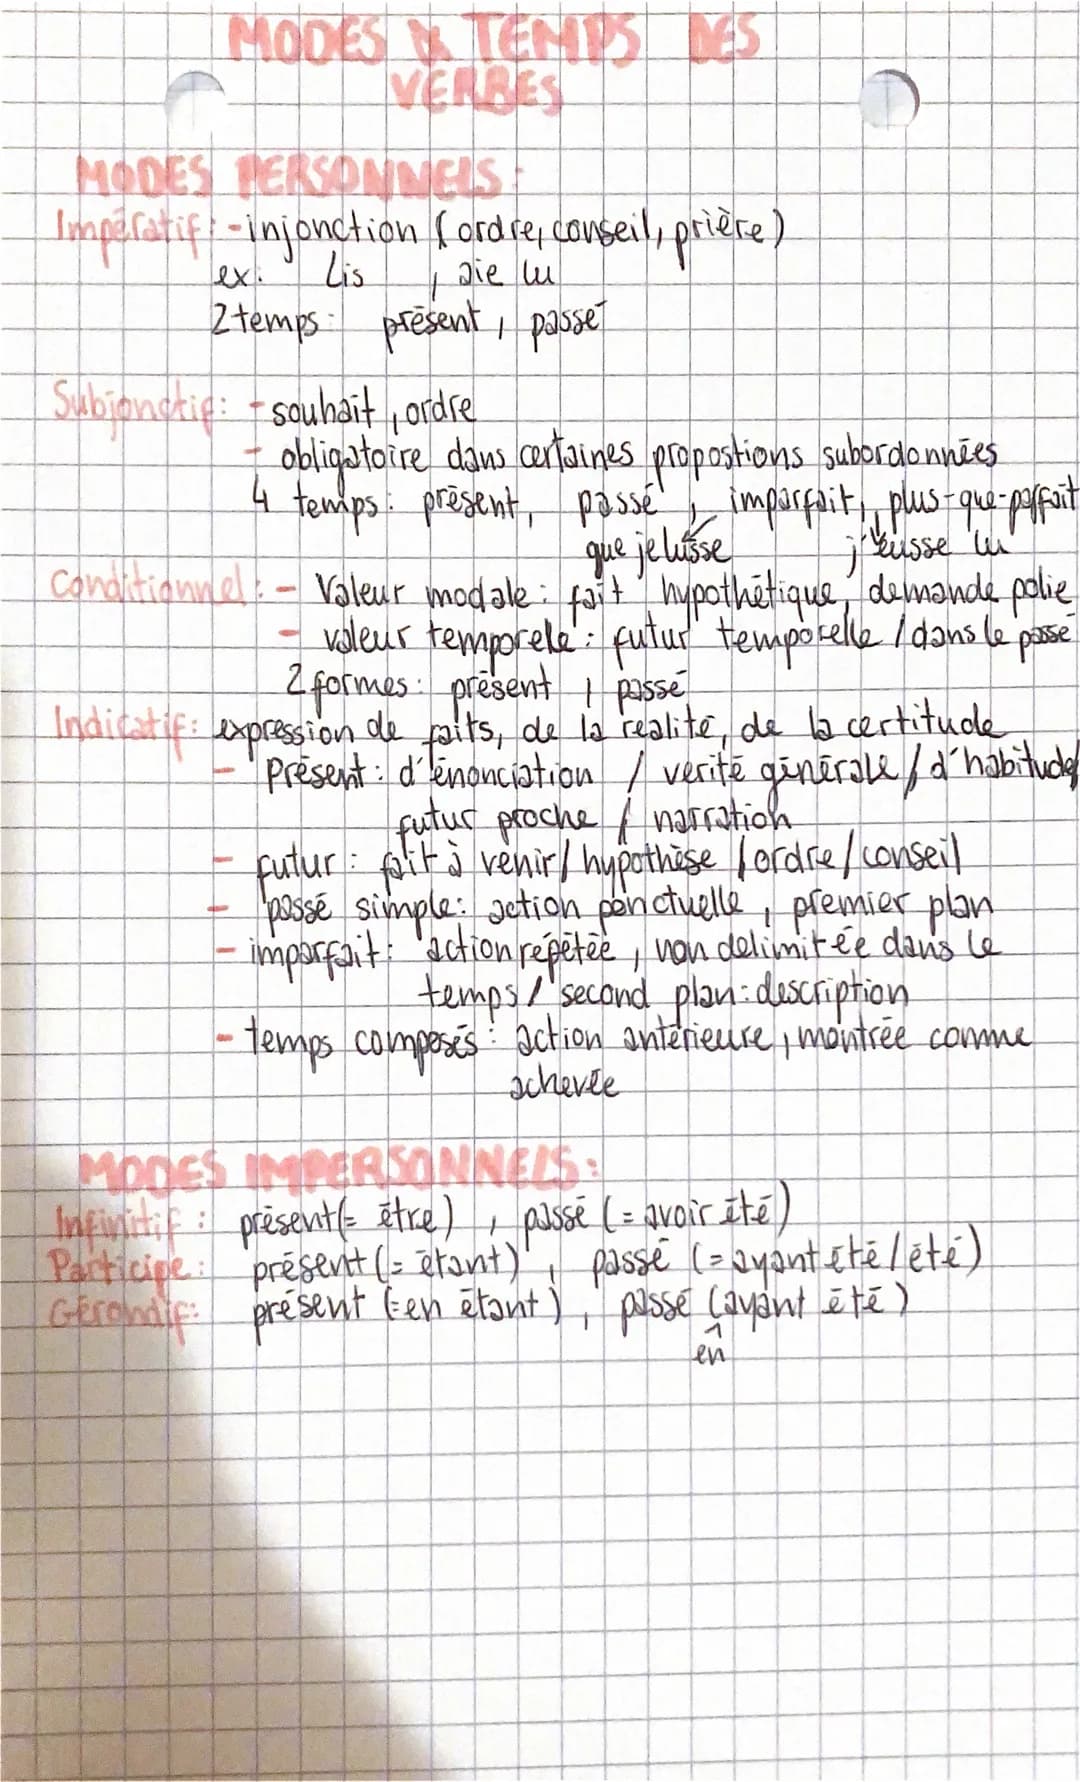 MODES & TEMPS DES
VERBES
MODES PERSONNELS:
Impératif: -injonction (ordre, conseil, prière)
ex: Lis , aie lu
2 temps: présent, passé
Subjonctif: - souhait, ordre
- obligatoire dans certaines propostions subordonnées
4 temps: présent, passé, imparfait, plus-que-parfait
que je lusse j'eusse lu
Conditionnel: - Valeur modale: fait hypothétique, demande polie
- valeur temporele: futur temporelle / dans le passé
2 formes: présent, passé
Indicatif: expression de faits, de la realité, de la certitude
- Présent: d'énonciation / verité générale / d'habitude/
futur proche / narration
- futur: fait à venir / hypothèse / ordre / conseil
- passé simple: action ponctuelle, premier plan
- imparfait: action répétée, non delimitée dans le
temps / second plan: description
- temps composés: action antérieure, montrée comme
achevée
MODES IMPERSONNELS:
Infinitif: présent (= être), passé (= avoir été)
Participe: présent (= étant), passé (= ayant été / été)
Gérondif: présent (= en étant), passé (ayant été)
en